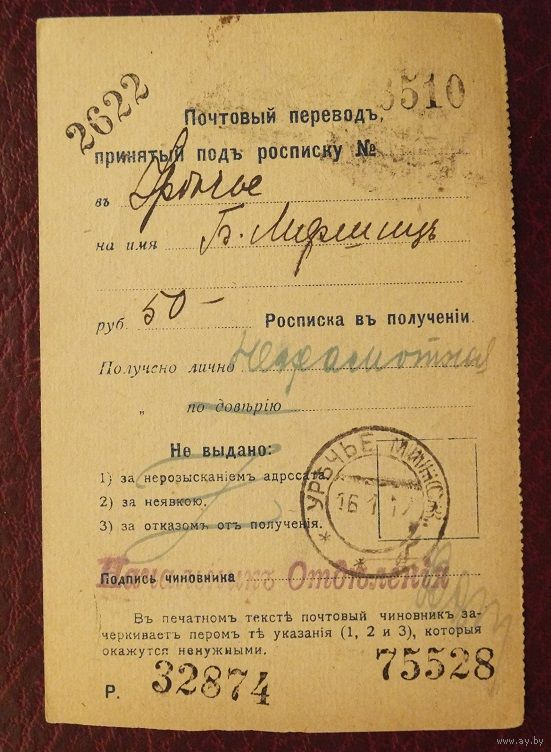 2622
3510
Почтовый переводъ,
принятый подъ росписку №
въ Урѣчье
на имя Б. Лифшицъ
руб. 50 —
Росписка въ полученіи.
Получено лично Неграмотная
„ по довѣрію
Не выдано:
1) за нерозысканіем адрссата.
2) за неявкою.
3) за отказом от полученія.
* УРѢЧЬЕ МИНСК. *
16.1.17
Начальникъ Отдѣленія
Подпись чиновника
Въ печатномъ текстѣ почтовый чиновникъ за-
черкиваетъ пером тѣ указанія (1, 2 и 3), которыя
окажутся ненужными.
Р. 32874
75528
www.ay.by